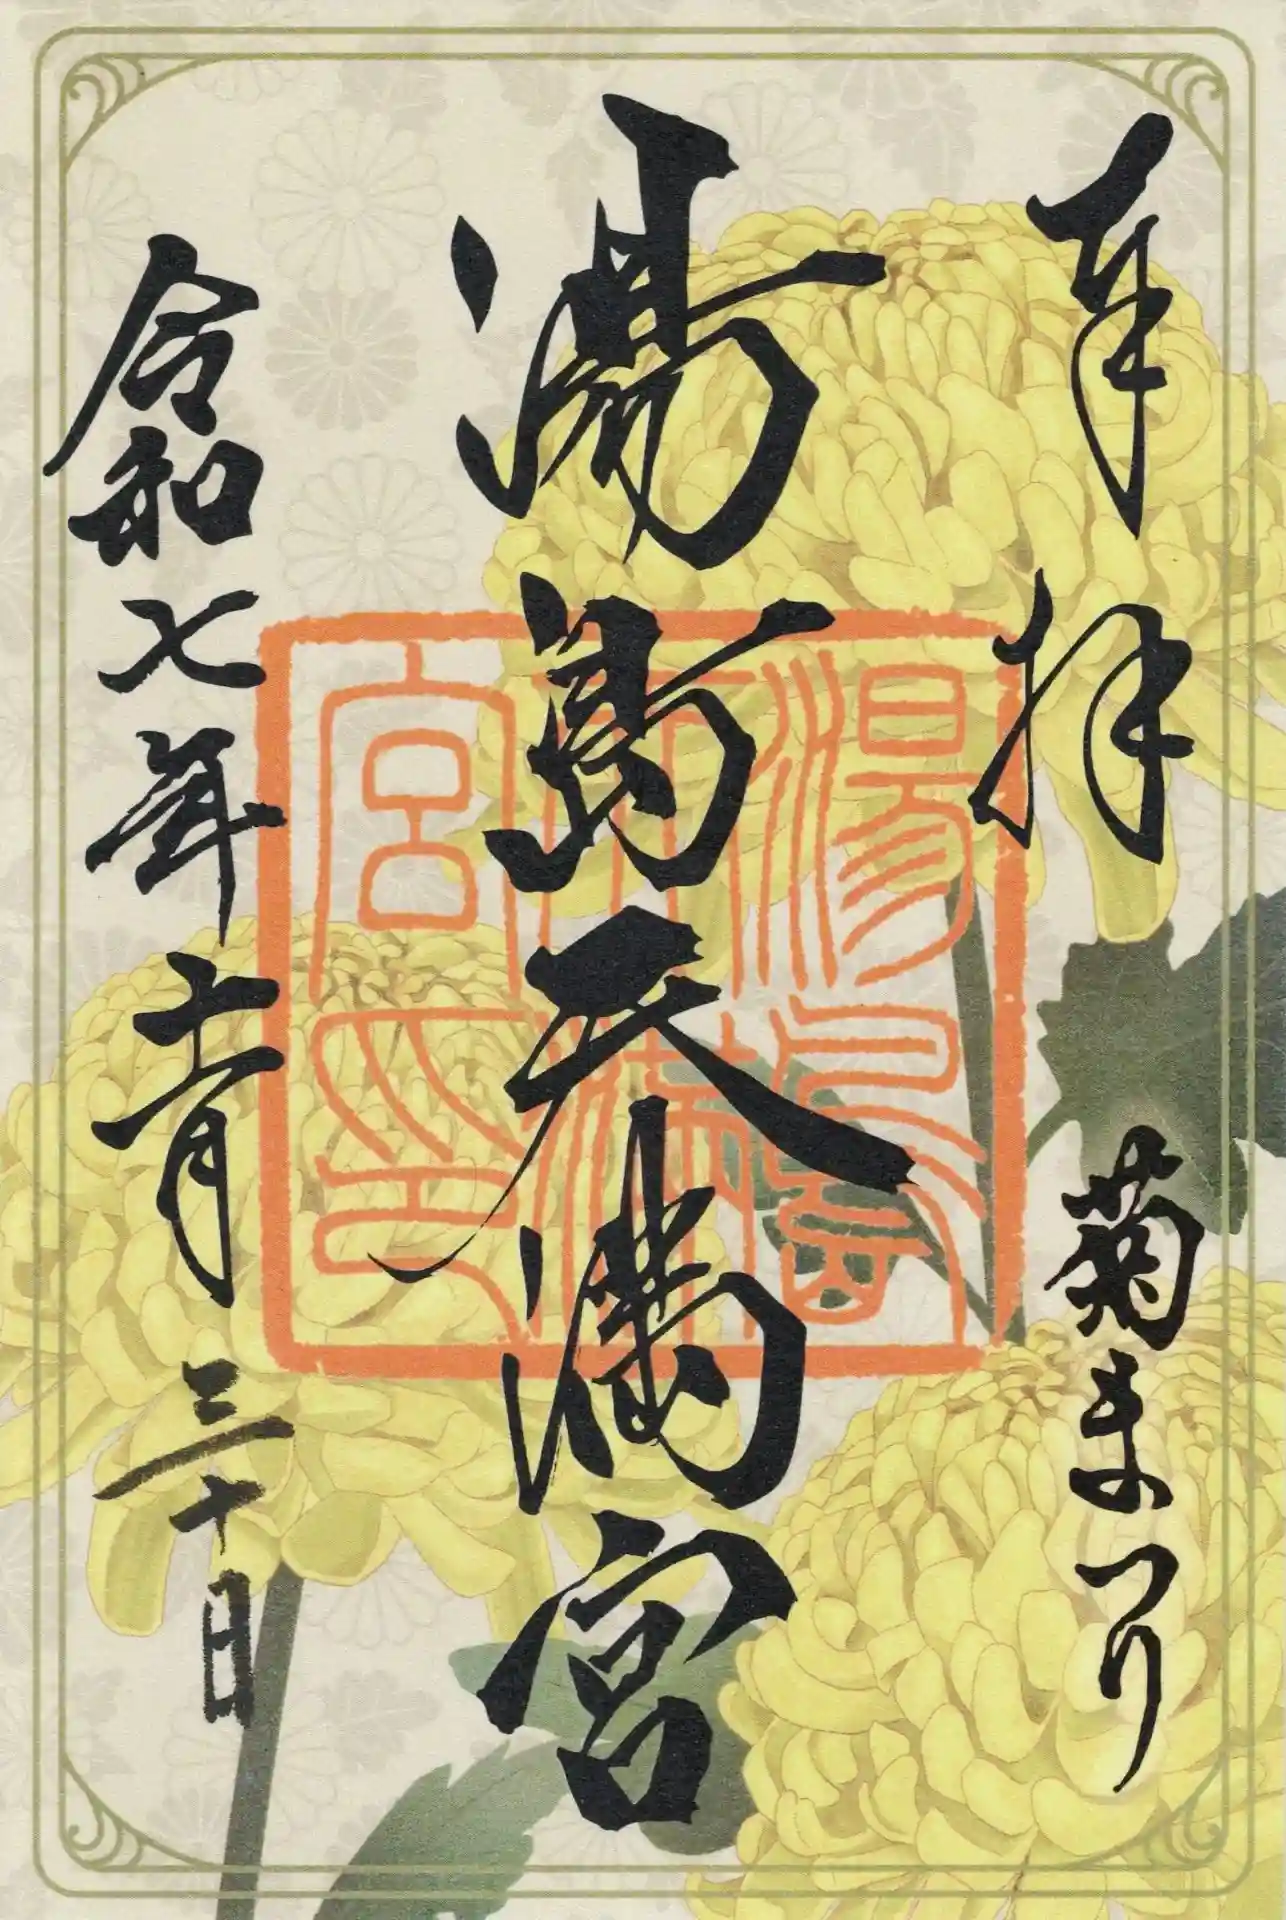 奉拝
菊まつり
湯島天満宮
湯島天満宮印
令和七年十一月三十日